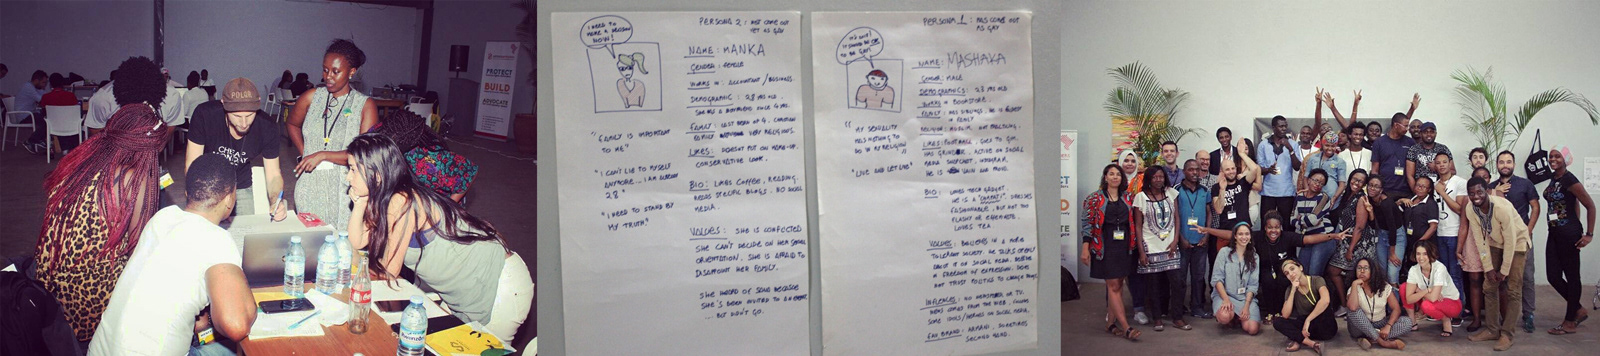 POLAR
CHEAP
MONDAY
PROTECT
BUILD
ADVOCATE
I NEED TO
MAKE A DECISION
NOW!
PERSONA 2: NOT COME OUT
YET AS GAY
NAME: MANKA
GENDER: FEMALE
WORKS IN: ACCOUNTANT/BUSINESS.
DEMOGRAPHIC: 28 YRS OLD
FAMILY: LAST BORN OF 4. CHRISTIAN
FAMILY VERY RELIGIOUS.
LIKES: DOESN'T PUT ON MAKE-UP.
CONSERVATIVE LOOK.
BIO: LIKES COFFEE, READING,
READS SPECIFIC BLOGS, BIG SOCIAL
MEDIA.
VALUES: SHE IS CONFLICTED
SHE CAN'T DECIDE ON HER SEXUAL
ORIENTATION. SHE IS AFRAID TO
DISAPPOINT HER FAMILY.
SHE HEARD OF SOME BECAUSE
SHE'S BEEN INVITED TO AN EVENT
... BUT WON'T GO.
"FAMILY IS IMPORTANT
TO ME"
"I CAN'T LIE TO MYSELF
ANYMORE... I AM ALREADY
28"
"I NEED TO STAND BY
MY TRUTH"
TO BE GAY!
PERSONA 1: HAS COME OUT
AS GAY
NAME: MASHAKA
GENDER: MALE
DEMOGRAPHICS: 28 YRS OLD
WORKS IN BOOKSTORE.
FAMILY: HAS SIBLINGS, HE IS ELDEST
IN FAMILY
RELIGION: MUSLIM, NOT PRACTICING.
LIKES: FOOTBALL, GOES TO GYM.
HAS GRINDR, ACTIVE ON SOCIAL
MEDIA SNAPCHAT, INSTAGRAM,
HE IS VAIN AND MOVES.
"MY SEXUALITY
HAS NOTHING TO
DO W/ MY RELIGION"
"LIVE AND LET LIVE"
BIO: LIKES TECH GADGET
HE IS A
FASHIONABLE, BUT NOT TOO
FLASHY OR EXTREME.
LOVES TEA.
VALUES: BELIEVES IN A MORE
TOLERANT SOCIETY. HE TALKS OPENLY
ABOUT IT ON SOCIAL MEDIA. BELIEVE
IN FREEDOM OF EXPRESSION. DOES
NOT TRUST POLITICS TO CHANGE THINGS.
INFLUENCES: NO NEWSPAPER OR TV.
NEWS COMES FROM THE WEB, FOLLOWS
SOME ICONS/HEROES ON SOCIAL MEDIA.
FAV BRAND: ARMANI, SOMETIMES
SECOND HAND.